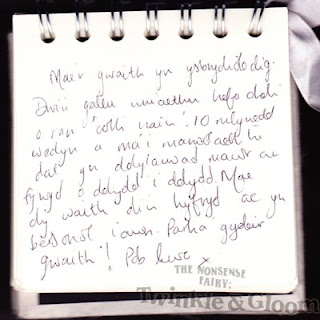 Mae'r gwaith yn ysbrydoledig.
Dwi'n gallu uniaethu hefo chdi
o ran 'colli nain'. 10 mlynedd
wedyn a ma'i marwolaeth hi
dal yn ddylanwad mawr ar
fywyd o ddydd i ddydd. Mae
dy waith di'n hyfryd ac yn
bersonol iawn. Parha gyda'r
gwaith! Pob lwc x
THE NONSENSE
FAIRY:
Twinkle & Gloom